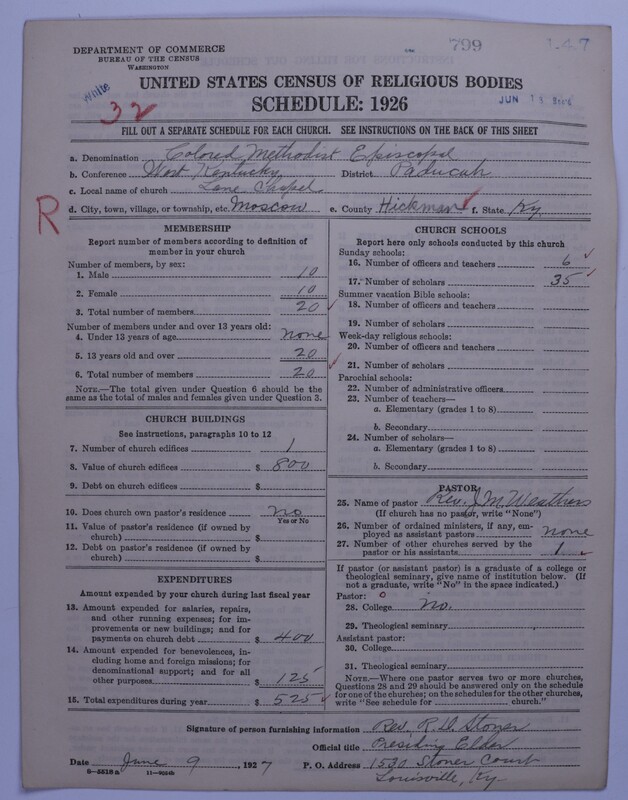 799
DEPARTMENT OF COMMERCE
BUREAU OF THE CENSUS
WASHINGTON
White
32
UNITED STATES CENSUS OF RELIGIOUS BODIES
SCHEDULE: 1926
JUN
FILL OUT A SEPARATE SCHEDULE FOR EACH CHURCH. SEE INSTRUCTIONS ON THE BACK OF THIS SHEET
a. Denomination Colored Methodist Episcopal
b. Conference West Kentucky District Paducah
c. Local name of church Lane Chapel
R
d. City, town, village, or township, etc. Moscow e. County Hickman f. State Ky
MEMBERSHIP
Report number of members according to definition of
member in your church
Number of members, by sex:
1. Male 10
2. Female 10
3. Total number of members 20
Number of members under and over 13 years old:
4. Under 13 years of age None
5. 13 years old and over 20
6. Total number of members 20
NOTE.—The total given under Question 6 should be
the same as the total of males and females given under Question 3.
CHURCH BUILDINGS
See instructions, paragraphs 10 to 12
7. Number of church edifices 1
8. Value of church edifices $ 800
9. Debt on church edifices $
10. Does church own pastor's residence No
Yes or No
11. Value of pastor's residence (if owned by
church) $
12. Debt on pastor's residence (if owned by
church) $
EXPENDITURES
Amount expended by your church during last fiscal year
13. Amount expended for salaries, repairs,
and other running expenses; for im-
provements or new buildings; and for
payments on church debt $ 400
14. Amount expended for benevolences, in-
cluding home and foreign missions; for
denominational support; and for all
other purposes $ 125
15. Total expenditures during year $ 525
CHURCH SCHOOLS
Report here only schools conducted by this church
Sunday schools:
16. Number of officers and teachers 6
17. Number of scholars 35
Summer vacation Bible schools:
18. Number of officers and teachers
19. Number of scholars
Week-day religious schools:
20. Number of officers and teachers
21. Number of scholars
Parochial schools:
22. Number of administrative officers
23. Number of teachers—
a. Elementary (grades 1 to 8)
b. Secondary
24. Number of scholars—
a. Elementary (grades 1 to 8)
b. Secondary
PASTOR
25. Name of pastor Rev. J. M. Weathers
(If church has no pastor, write "None")
26. Number of ordained ministers, if any, em-
ployed as assistant pastors none
27. Number of other churches served by the
pastor or his assistants 1
If pastor (or assistant pastor) is a graduate of a college or
theological seminary, give name of institution below. (If
not a graduate, write "No" in the space indicated.)
Pastor:
28. College no.
29. Theological seminary
Assistant pastor:
30. College
31. Theological seminary
NOTE.—Where one pastor serves two or more churches,
Questions 28 and 29 should be answered only on the schedule
for one of the churches; on the schedules for the other churches,
write "See schedule for church."
Signature of person furnishing information Rev. R. D. Stoner
Official title Presiding Elder
Date June 9, 1927 P. O. Address 1530 Stoner Court
Louisville, Ky.